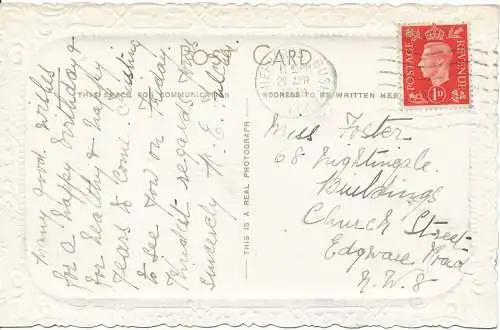 POST CARD
THIS SPACE FOR COMMUNICATION
ADDRESS TO BE WRITTEN HERE
Many good wishes
for a happy birthday &
for healthy & happy
years to come. Trusting
to see you on Friday.
Kindest regards from
Sincerely A. E.
THIS IS A REAL PHOTOGRAPH
26 APR
POSTAGE
REVENUE
1D
Miss Foster
68 Nightingale
Buildings
Church Street
Edgware Road
N.W.8